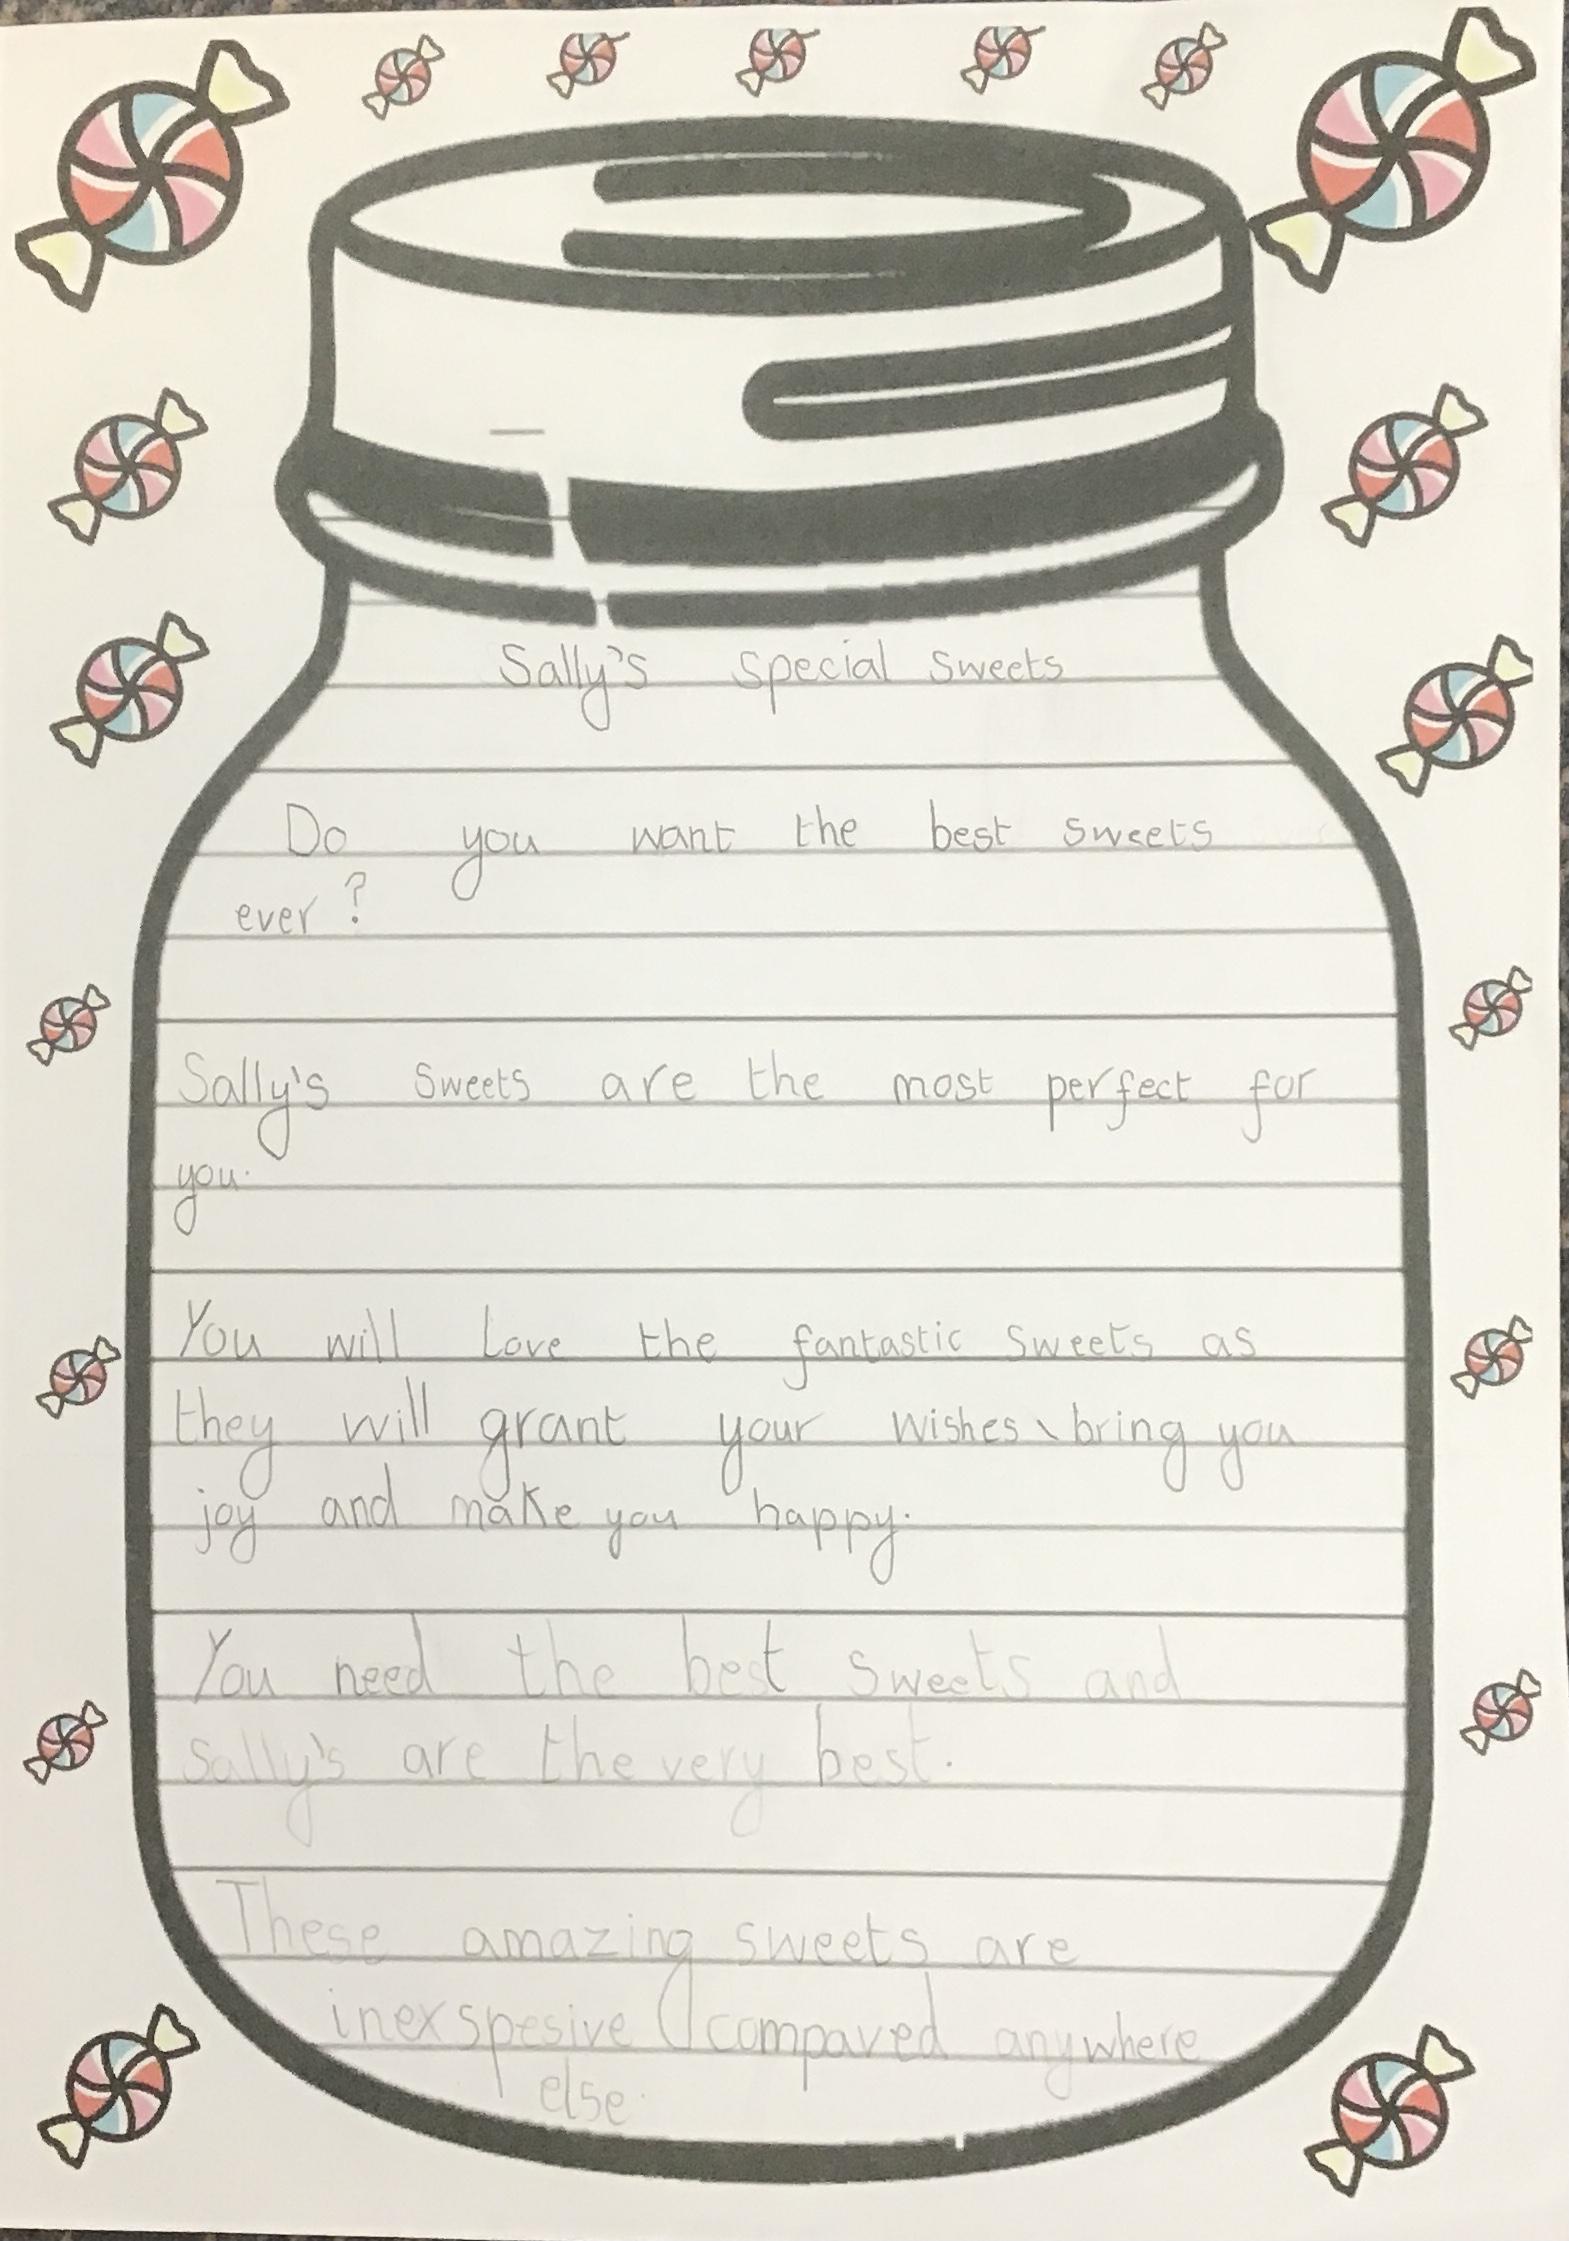 Sally's special sweets
Do you want the best sweets
ever?
Sally's sweets are the most perfect for
you.
You will love the fantastic sweets as
they will grant your wishes, bring you
joy and make you happy.
You need the best sweets and
Sally's are the very best.
These amazing sweets are
inexspesive compared anywhere
else.